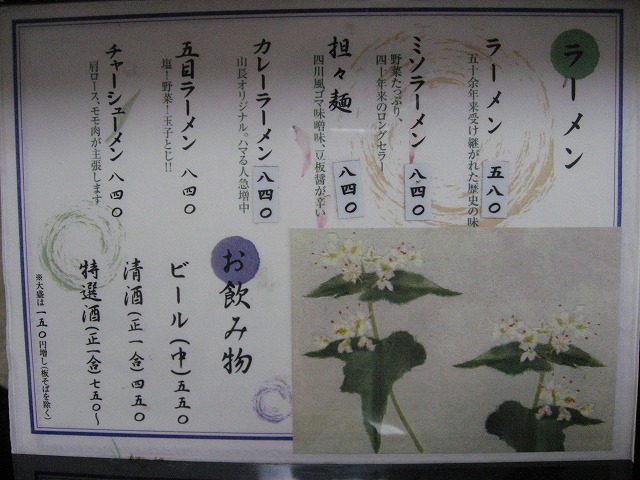 ラーメン
ラーメン 五八〇
五十余年来受け継がれた歴史の味
ミソラーメン 八四〇
野菜たっぷり、
四十年来のロングセラー
担々麺 八四〇
四川風ゴマ味噌味、豆板醤が辛い
カレーラーメン 八四〇
山長オリジナル。ハマる人急増中
五目ラーメン 八四〇
塩!野菜!玉子とじ!!
チャーシューメン 八四〇
肩ロース、モモ肉が主張します
お飲み物
ビール(中)五五〇
清酒(正一合)四五〇
特選酒(正一合)七五〇~
※大盛は一五〇円増し(板そばを除く)